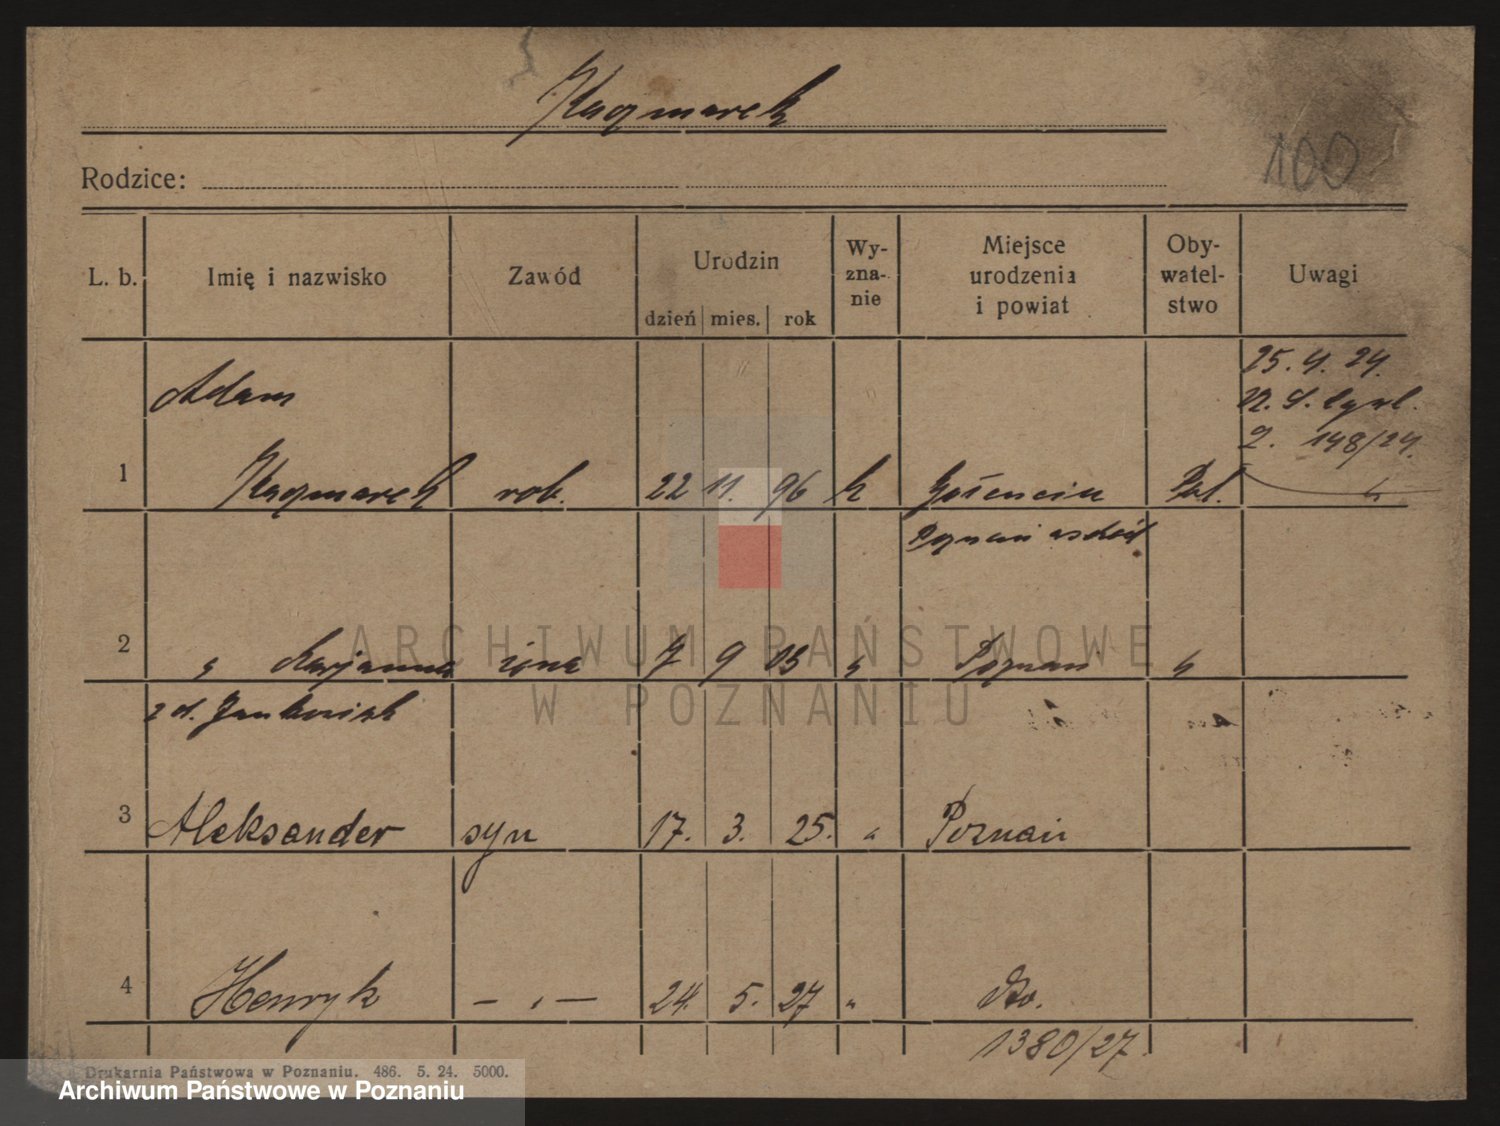 Kaczmarek
100
Rodzice:
L. b. Imię i nazwisko Zawód Urodzin dzień mies. rok Wy-zna-nie Miejsce urodzenia i powiat Oby-watel-stwo Uwagi
25. 4. 24.
Adam
148/24.
1 Kaczmarek rob. 22 11. 96 k Pol.
Poznań
2 " Marjanna żona 7 9 03 " Poznań "
z d. Jankowiak
3 Aleksander syn 17. 3. 25. " Poznań
4 Henryk — " — 24. 5. 27 "
1380/27.
ARCHIWUM PAŃSTWOWE
W POZNANIU
Drukarnia Państwowa w Poznaniu. 486. 5. 24. 5000.
Archiwum Państwowe w Poznaniu